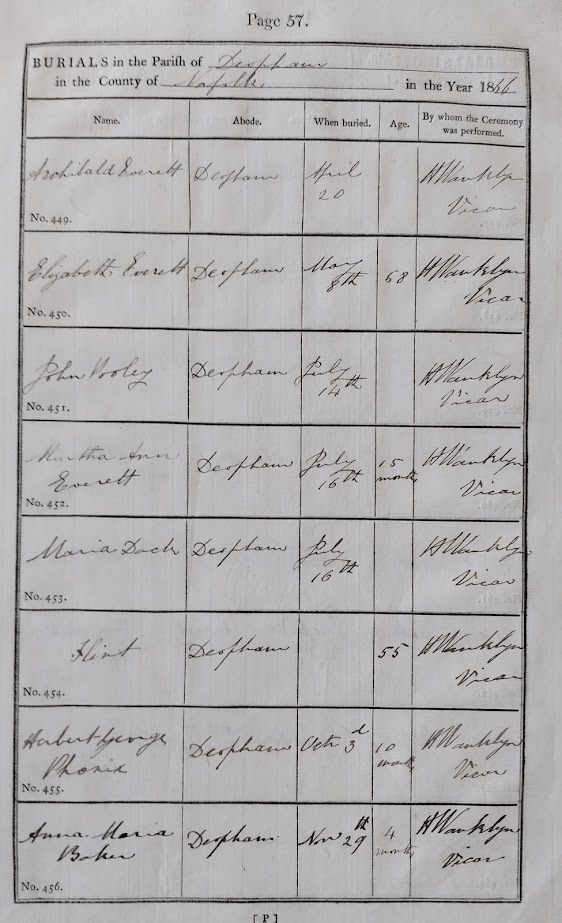 Page 57.
BURIALS in the Parish of Deopham
in the County of Norfolk in the Year 1866
Name. Abode. When buried. Age. By whom the Ceremony was performed.
Archibald Everett Deopham April 20 H Wanklyn Vicar
No. 449.
Elizabeth Everett Deopham May 8th 68 H Wanklyn Vicar
No. 450.
John Pooley Deopham July 14th H Wanklyn Vicar
No. 451.
Martha Ann Everett Deopham July 16th 15 months H Wanklyn Vicar
No. 452.
Maria Dack Deopham July 16th H Wanklyn Vicar
No. 453.
Flint Deopham 55 H Wanklyn Vicar
No. 454.
Herbert George Phœnix Deopham Octr 3d 10 months H Wanklyn Vicar
No. 455.
Anna Maria Baker Deopham Novr 29th 4 months H Wanklyn Vicar
No. 456.
[P]